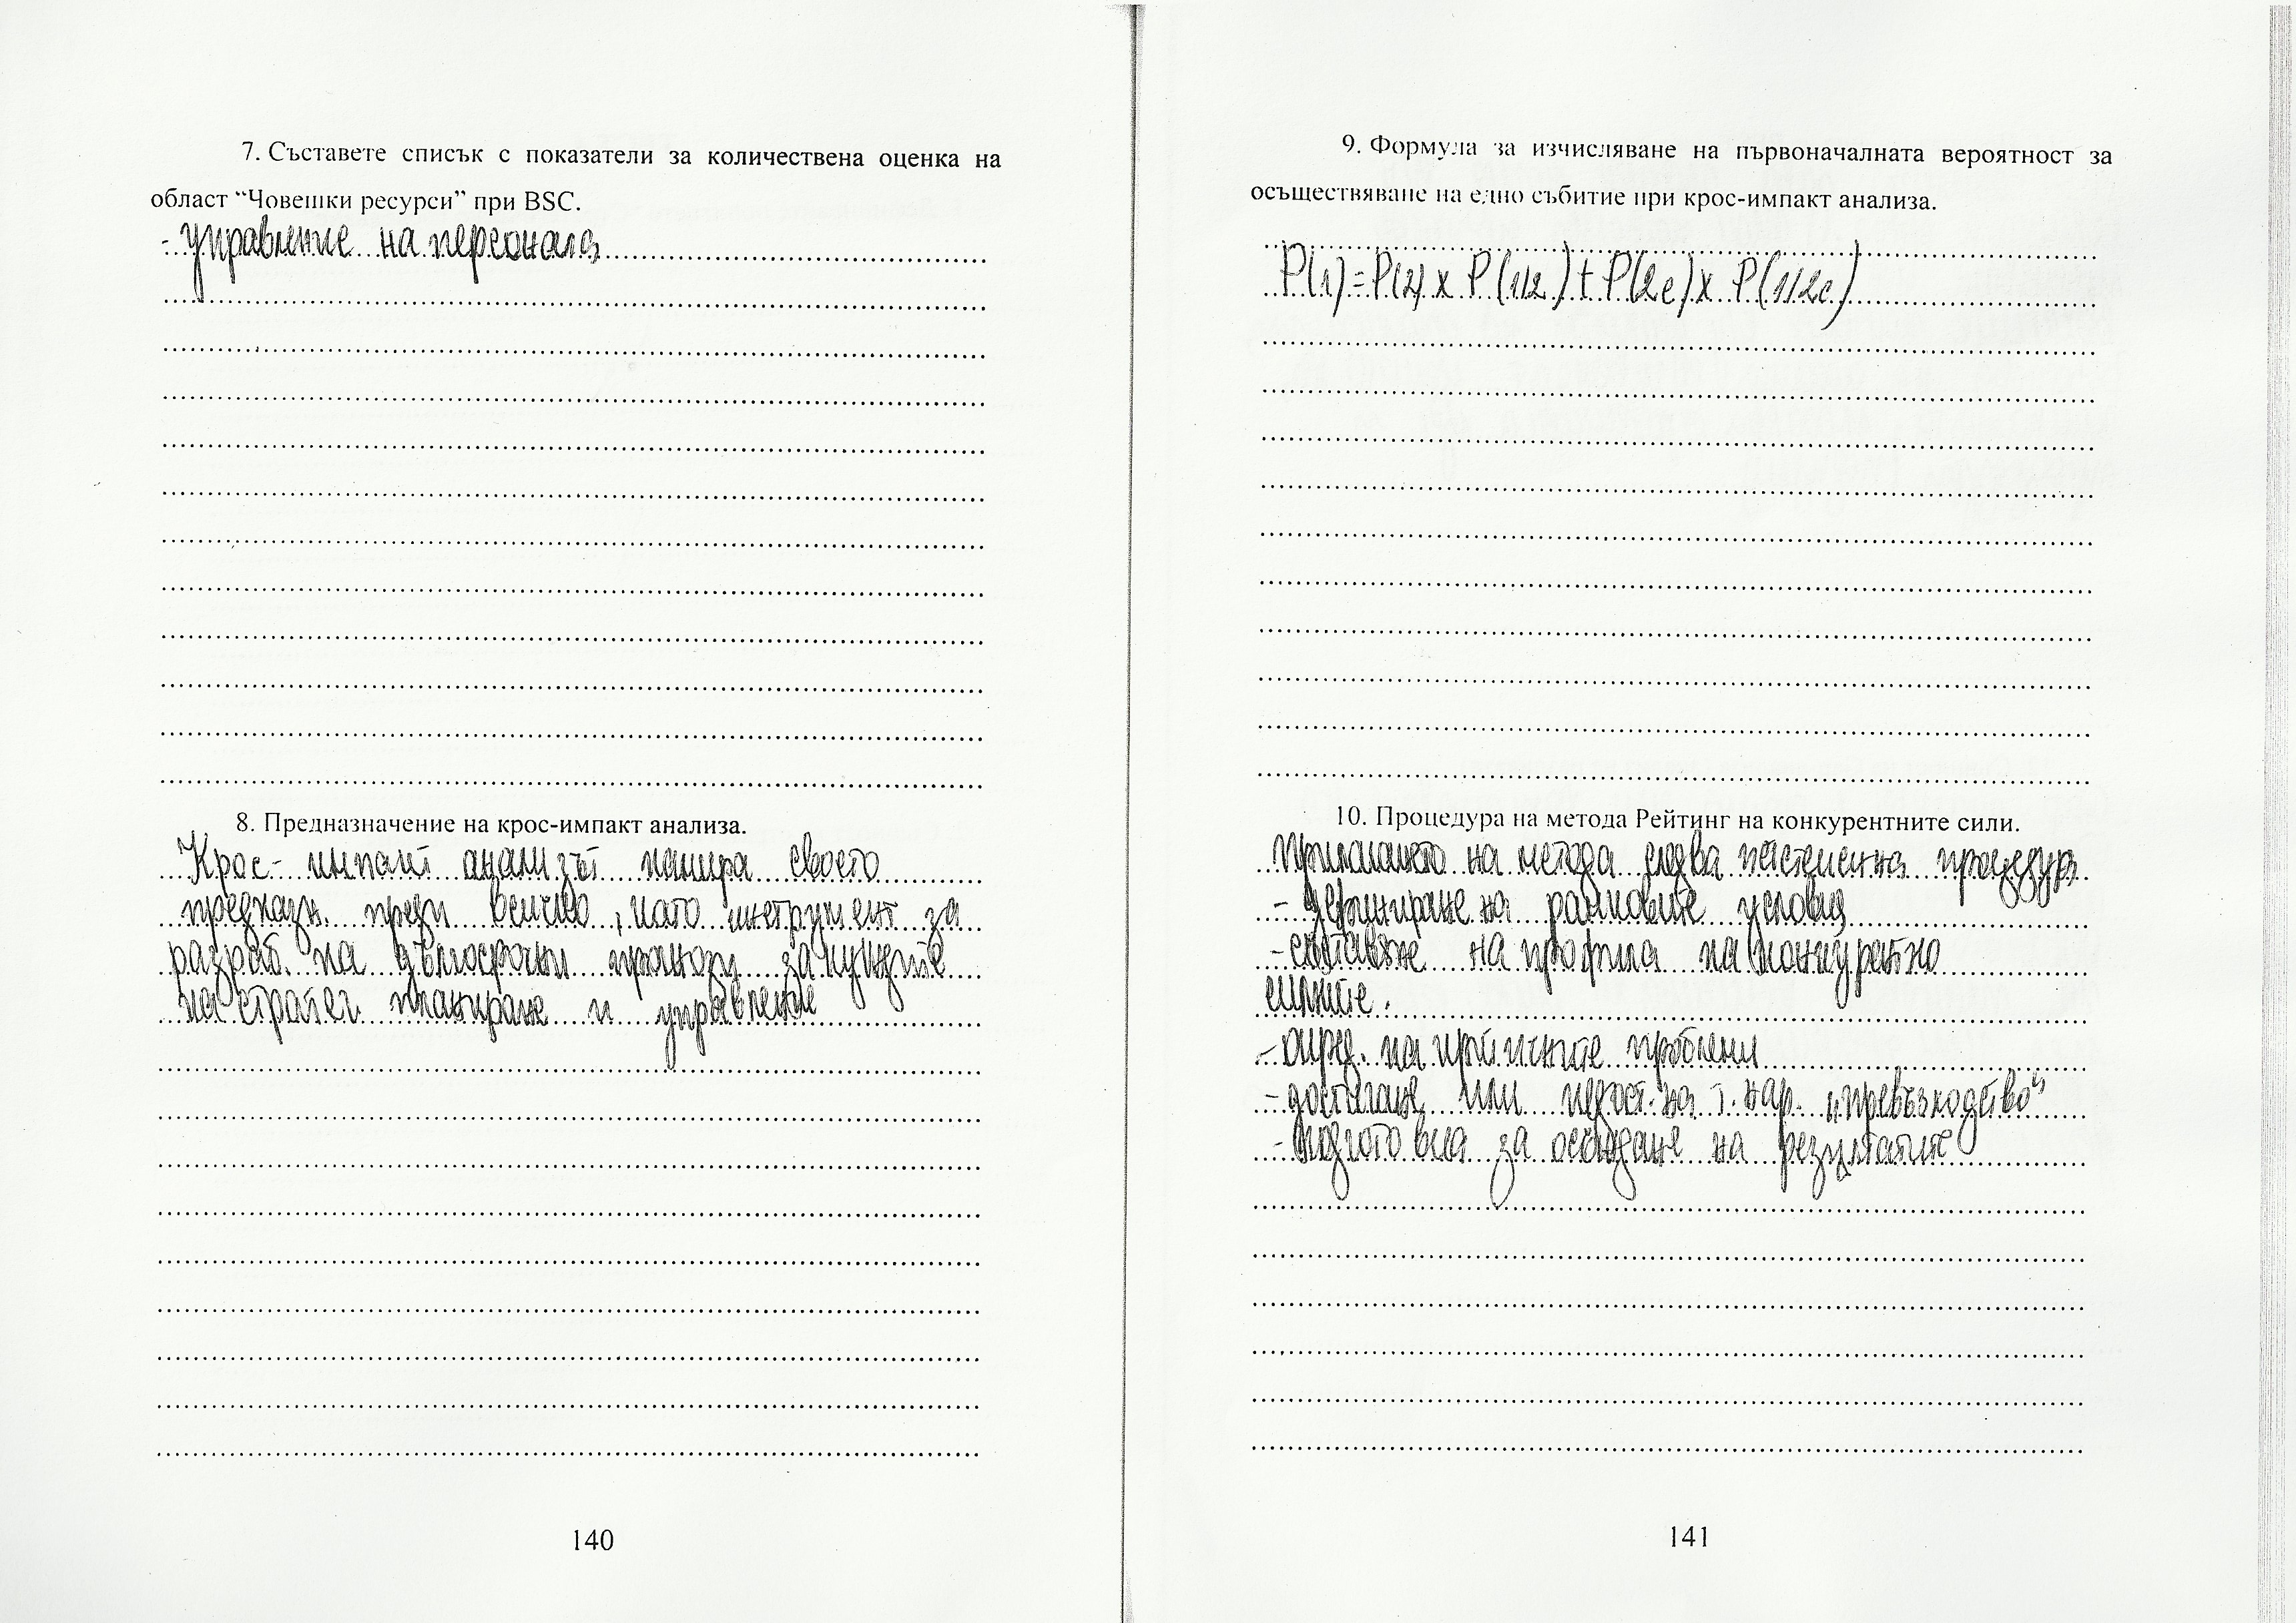 7. Съставете списък с показатели за количествена оценка на
област “Човешки ресурси” при BSC.
- управление на персонала
8. Предназначение на крос-импакт анализа.
Крос- импакт анализът намира своето
предназн. преди всичко, като инструмент за
разраб. на дългосрочни прогнози за нуждите
на стратег. планиране и управление
140
9. Формула за изчисляване на първоначалната вероятност за
осъществяване на едно събитие при крос-импакт анализа.
P(1)=P(2) x P(1/2) + P(2c) x P(1/2c)
10. Процедура на метода Рейтинг на конкурентните сили.
Прилагането на метода следва процедура
- дефиниране на рамковите условия
- съставяне на профила на конкурентно
силите.
- опред. на проблеми
- достигане или недост. на т. нар. „превъзходство“
- подготовка за осъждане на резултатите
141